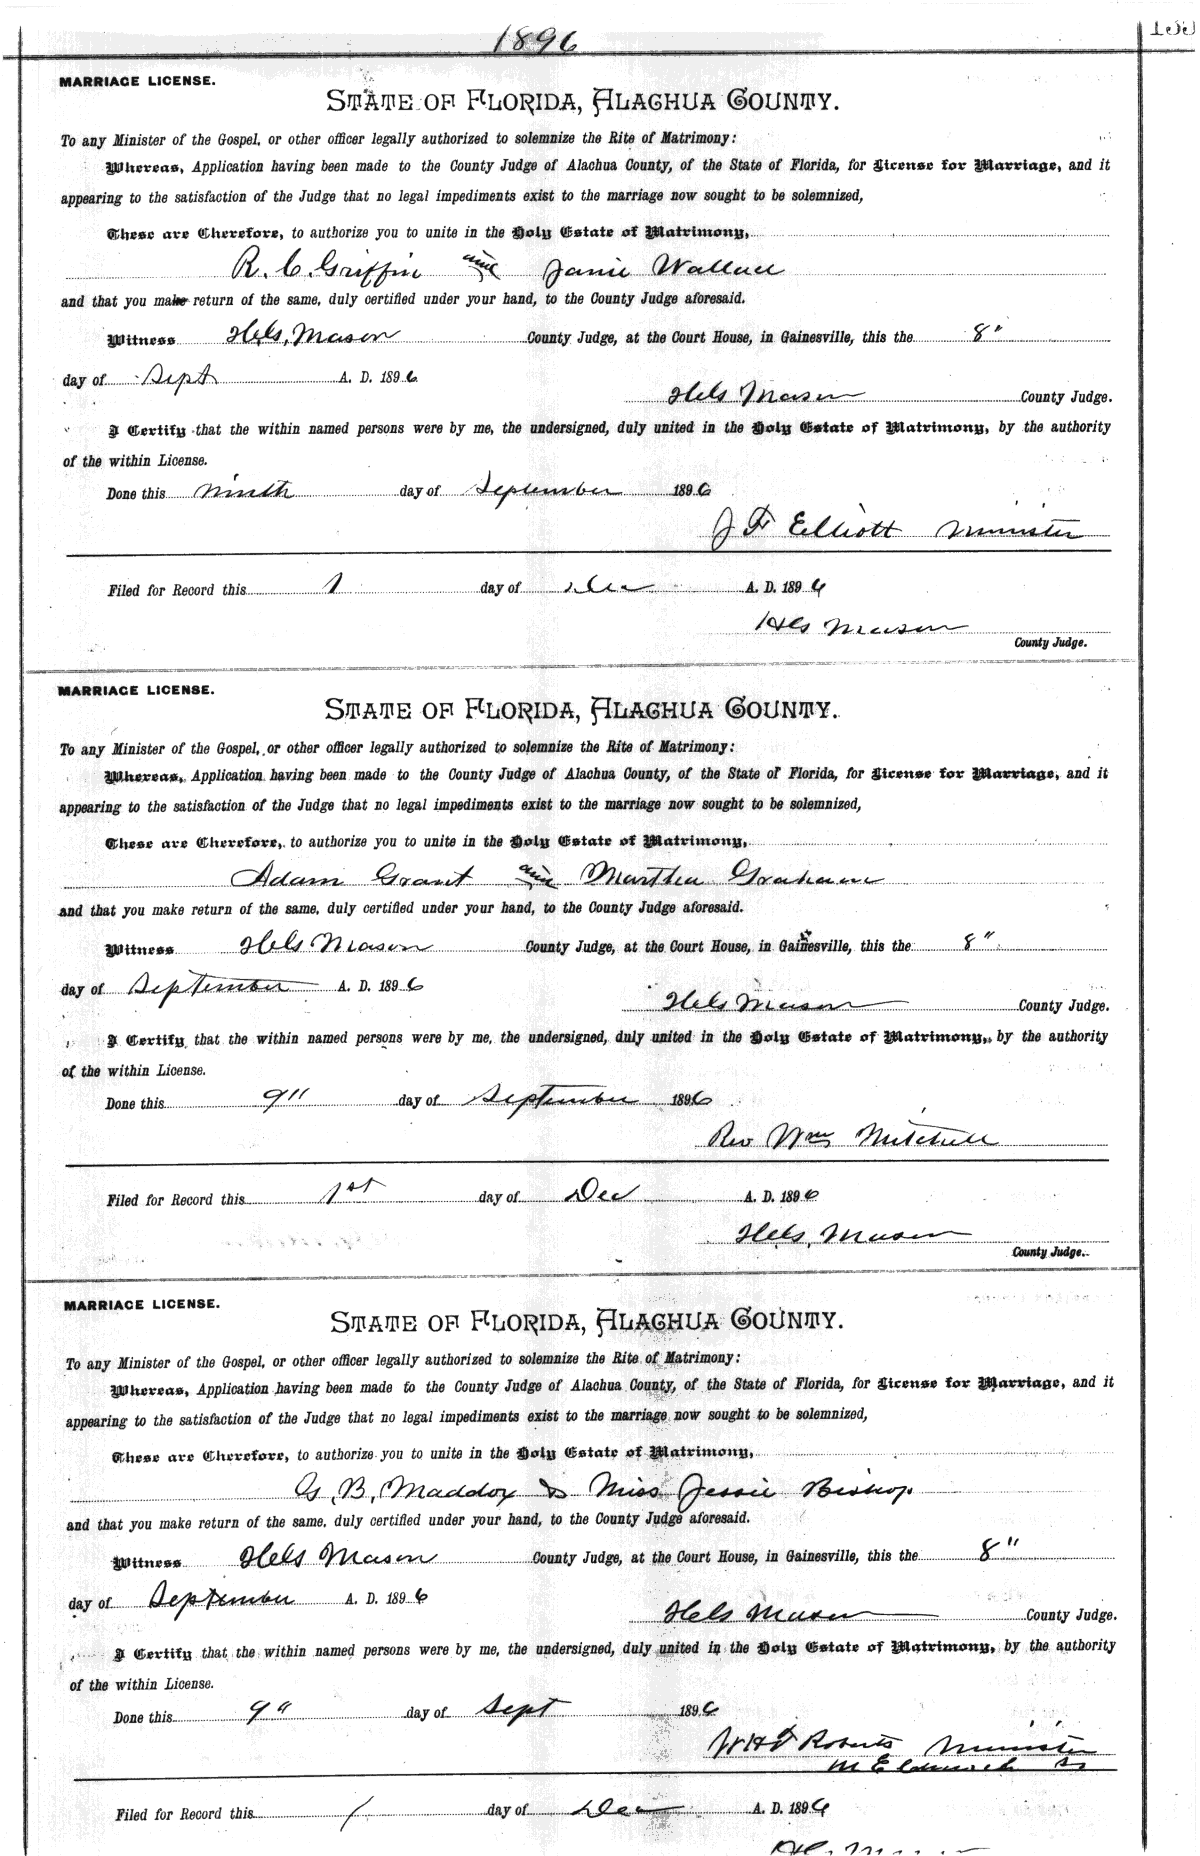 1896
MARRIAGE LICENSE.
STATE OF FLORIDA, ALACHUA COUNTY.
To any Minister of the Gospel, or other officer legally authorized to solemnize the Rite of Matrimony:
Whereas, Application having been made to the County Judge of Alachua County, of the State of Florida, for License for Marriage, and it
appearing to the satisfaction of the Judge that no legal impediments exist to the marriage now sought to be solemnized,
These are Therefore, to authorize you to unite in the Holy Estate of Matrimony,
R. C. Griffin and Janie Wallace
and that you make return of the same, duly certified under your hand, to the County Judge aforesaid.
Witness Mason County Judge, at the Court House, in Gainesville, this the 8"
day of Sept A. D. 1896
Mason County Judge.
I Certify that the within named persons were by me, the undersigned, duly united in the Holy Estate of Matrimony, by the authority
of the within License.
Done this ninth day of September 1896
J F Elliott Minister
Filed for Record this 1 day of Dec A. D. 1896
Mason
County Judge.
MARRIAGE LICENSE.
STATE OF FLORIDA, ALACHUA COUNTY.
To any Minister of the Gospel, or other officer legally authorized to solemnize the Rite of Matrimony:
Whereas, Application having been made to the County Judge of Alachua County, of the State of Florida, for License for Marriage, and it
appearing to the satisfaction of the Judge that no legal impediments exist to the marriage now sought to be solemnized,
These are Therefore, to authorize you to unite in the Holy Estate of Matrimony,
Adam Grant and Martha Graham
and that you make return of the same, duly certified under your hand, to the County Judge aforesaid.
Witness Mason County Judge, at the Court House, in Gainesville, this the 8"
day of September A. D. 1896
Mason County Judge.
I Certify that the within named persons were by me, the undersigned, duly united in the Holy Estate of Matrimony, by the authority
of the within License.
Done this 9" day of September 1896
Rev Wm Mitchell
Filed for Record this 1st day of Dec A. D. 1896
Mason
County Judge.
MARRIAGE LICENSE.
STATE OF FLORIDA, ALACHUA COUNTY.
To any Minister of the Gospel, or other officer legally authorized to solemnize the Rite of Matrimony:
Whereas, Application having been made to the County Judge of Alachua County, of the State of Florida, for License for Marriage, and it
appearing to the satisfaction of the Judge that no legal impediments exist to the marriage now sought to be solemnized,
These are Therefore, to authorize you to unite in the Holy Estate of Matrimony,
G. B. Maddox & Miss Jessie Bishop
and that you make return of the same, duly certified under your hand, to the County Judge aforesaid.
Witness Mason County Judge, at the Court House, in Gainesville, this the 8"
day of September A. D. 1896
Mason County Judge.
I Certify that the within named persons were by me, the undersigned, duly united in the Holy Estate of Matrimony, by the authority
of the within License.
Done this 9" day of Sept 1896
Roberts Minister
M E
Filed for Record this 1 day of Dec A. D. 1896